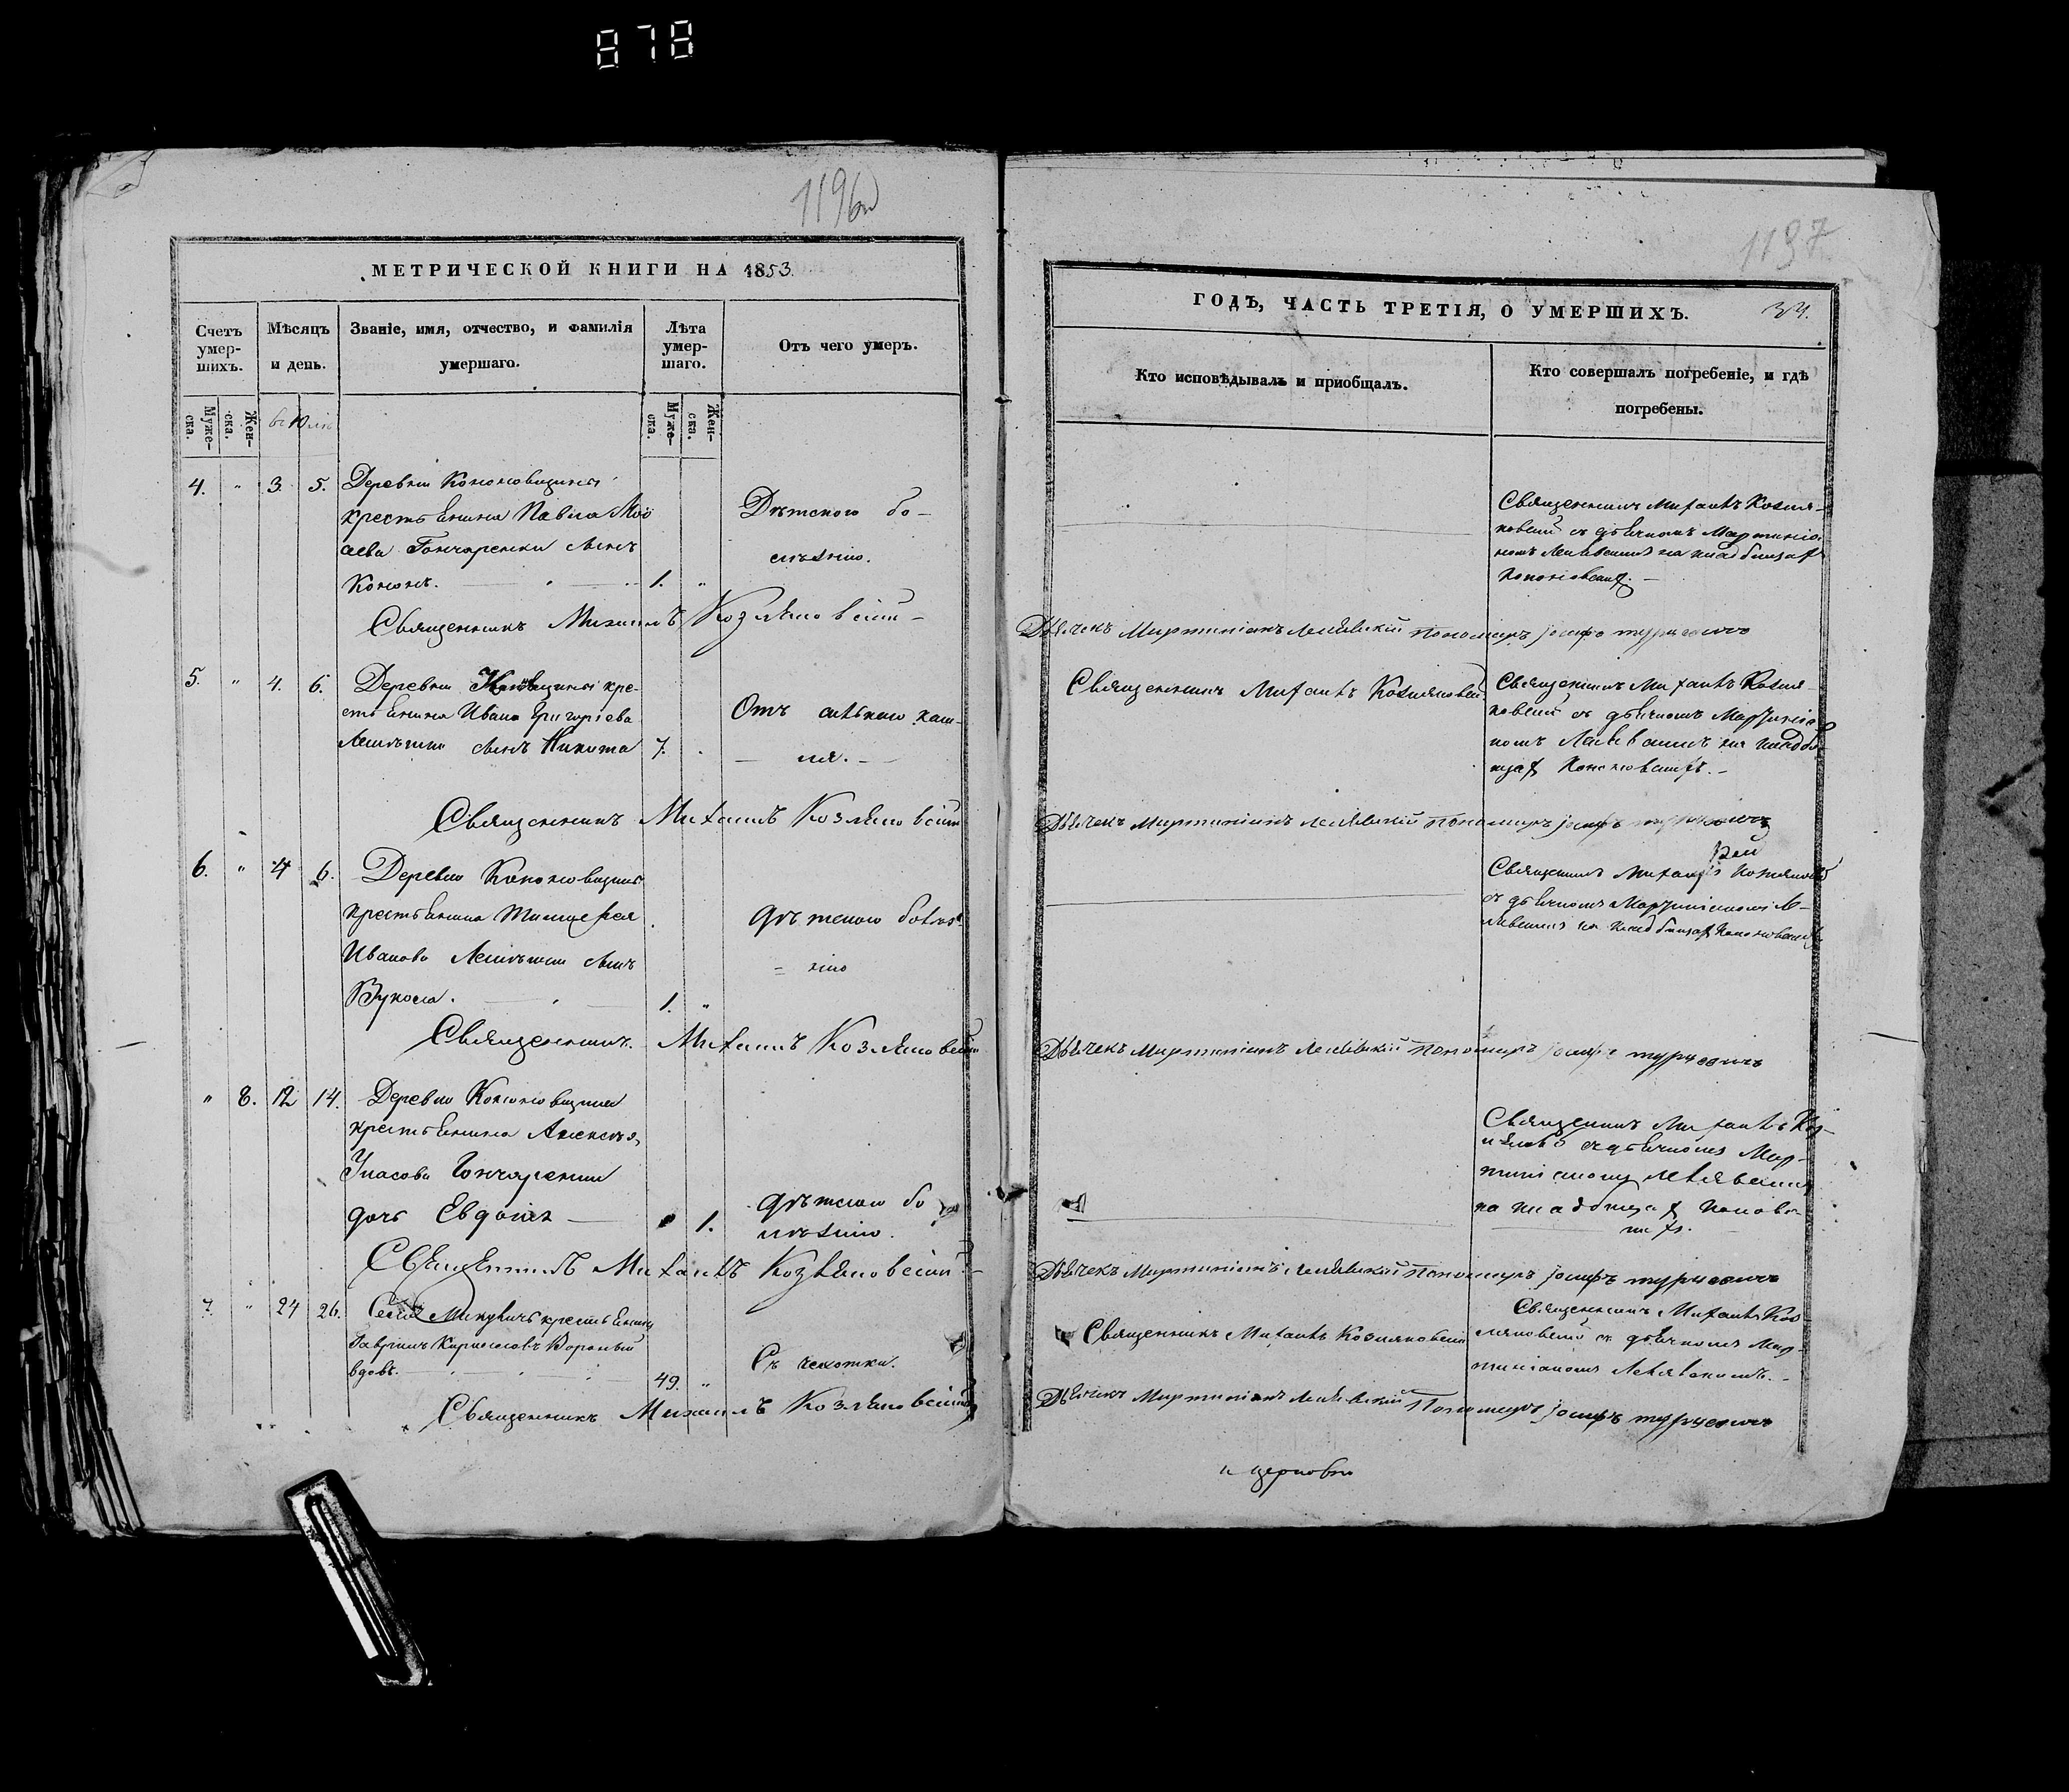 878
1196
МЕТРИЧЕСКОЙ КНИГИ НА 1853.
Счетъ умер-шихъ.
Мѣсяцъ и день.
Званіе, имя, отчество, и фамилія умершаго.
Лѣта умер-шаго.
Отъ чего умеръ.
Муже-ска.
Жен-ска.
Муже-ска.
Жен-ска.
4. " 3. 5. Деревни Кононовщины
крестьянина Павла
Гончаренка сынъ
Кононъ. 1. "
Дѣтского бо-
лѣзнію.
Священникъ Михаилъ Козляковскій
5. " 4. 6. Деревни кре-
стьянина Ивана Григорьева
сынъ Никита 7.
Отъ каш-
ля.
Священникъ Михаилъ Козляковскій
6. " 4 6. Деревни Кононовщины
крестьянина Тимофея
Иванова сынъ
Вукола. 1. "
дѣтскою болѣз-
нію
Священникъ Михаилъ Козляковскій
" 8. 12 14. Деревни Кононовщины
крестьянина Алексѣя
Гончаренки
дочь Евдокія 1.
дѣтскою бо
лѣзнію.
Священникъ Михаилъ Козляковскій
7. " 24 26. крестьянинъ
Гавріилъ Кириловъ Вороный
вдовъ. 49. "
Съ чахотки.
Священникъ Михаилъ Козляковскій
1197
ГОДЪ, ЧАСТЬ ТРЕТІЯ, О УМЕРШИХЪ. 34.
Кто исповѣдывалъ и приобщалъ.
Кто совершалъ погребеніе, и гдѣ погребены.
Священникъ Михаилъ Козля-
ковскій съ дьячкомъ Мартиніа
номъ на кладбищахъ
Кононовскихъ.
Дьячекъ Мартиніанъ Пономарь Іосифъ Турцевичъ
Священникъ Михаилъ Козляковскій
Священникъ Михаилъ Козля-
ковскій съ дьячкомъ Мартиніа
номъ на кладби-
щахъ Кононовскихъ.
Дьячекъ Мартиніанъ Пономарь Іосифъ Турцевичъ
Священникъ Михаилъ Козляковскій
съ дьячкомъ Мартиніаномъ
на кладбищахъ Кононовскихъ
Дьячекъ Мартиніанъ Пономарь Іосифъ Турцевичъ
Священникъ Михаилъ Коз-
съ дьячкомъ Мар-
тиніаномъ
на кладбищахъ
Дьячекъ Мартиніанъ Пономарь Іосифъ Турцевичъ
Священникъ Михаилъ Козляковскій
Священникъ Михаилъ Коз-
ляковскій съ дьячкомъ Мар-
тиніаномъ
Дьячекъ Мартиніанъ Пономарь Іосифъ Турцевичъ